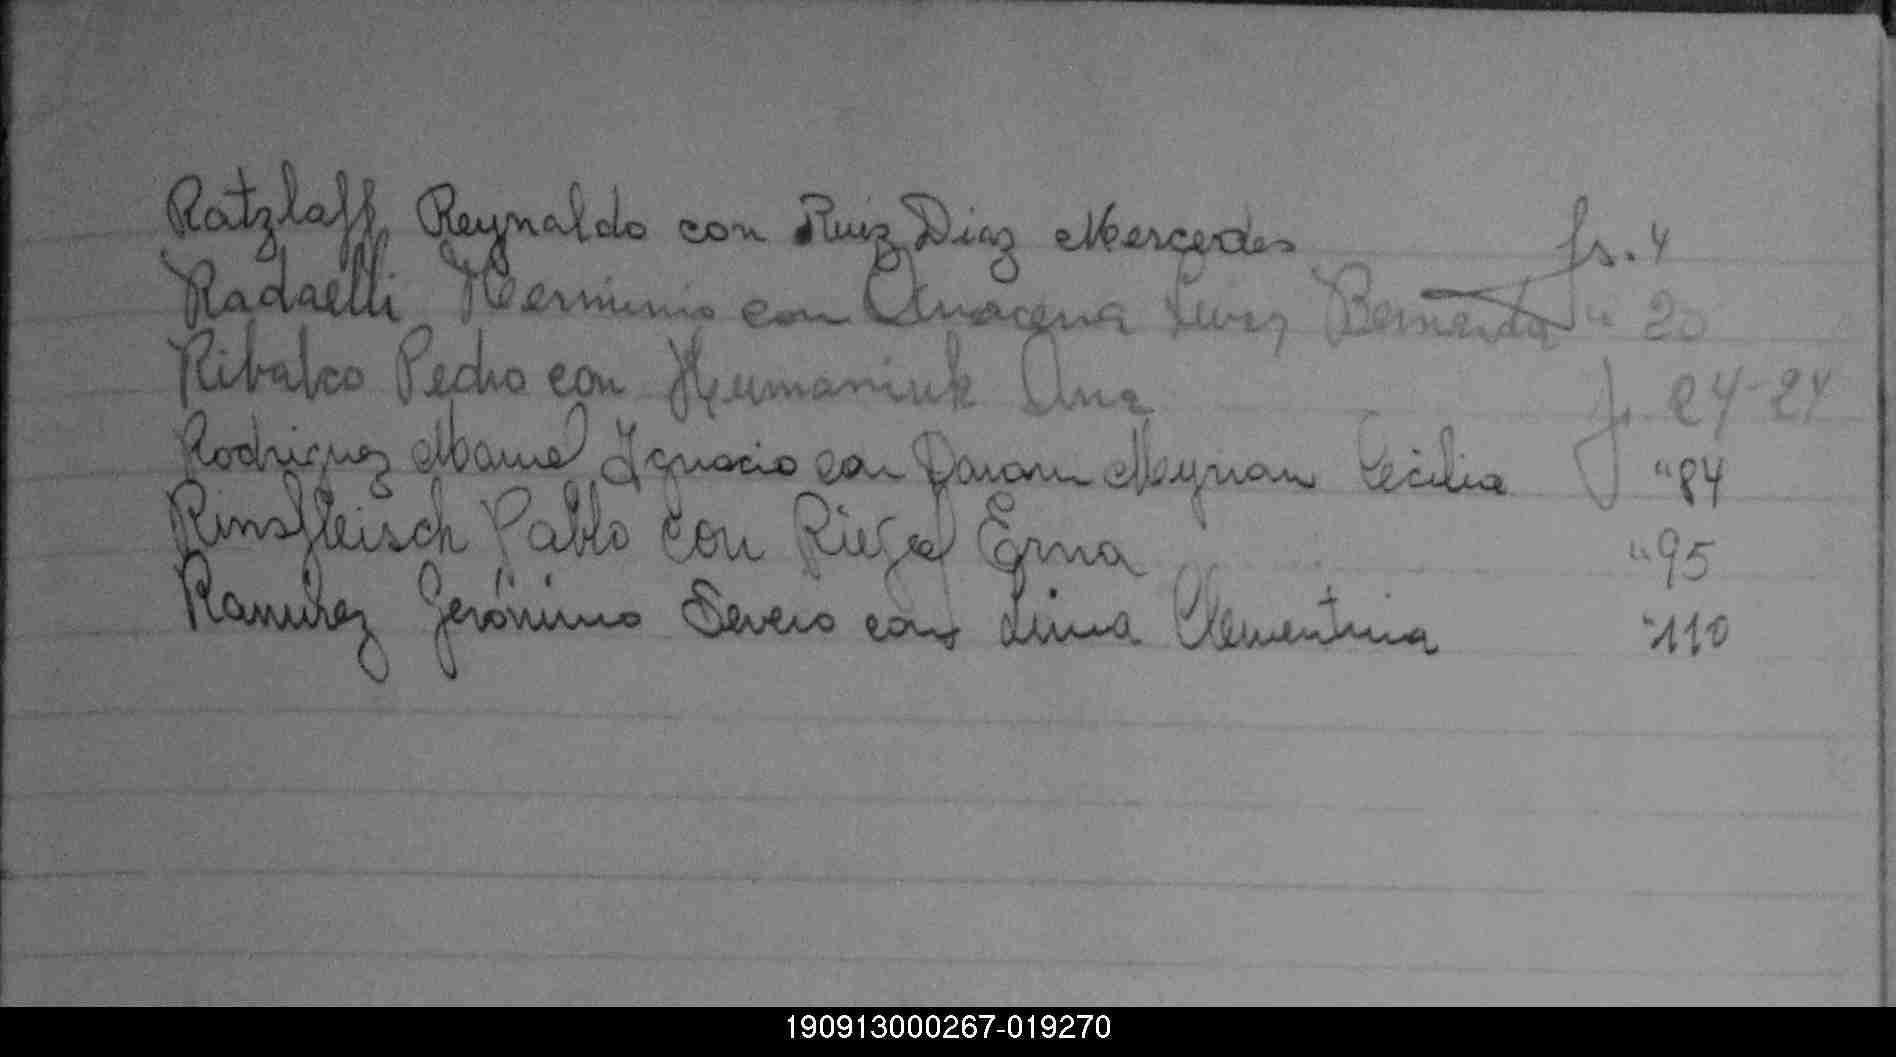 Ratzlaff Reynaldo con Ruiz Diaz Mercedes fs. 4
Radaelli Herminio con Bernarda " 20
Ribalco Pedro con Humaniuk Ana f. 24-24
Rodriguez Manuel Ignacio con Myrian Cecilia " 84
Rinsfleisch Pablo con Riegel Erna " 95
Ramirez Gerónimo Severo con Lima Clementina " 110
190913000267-019270